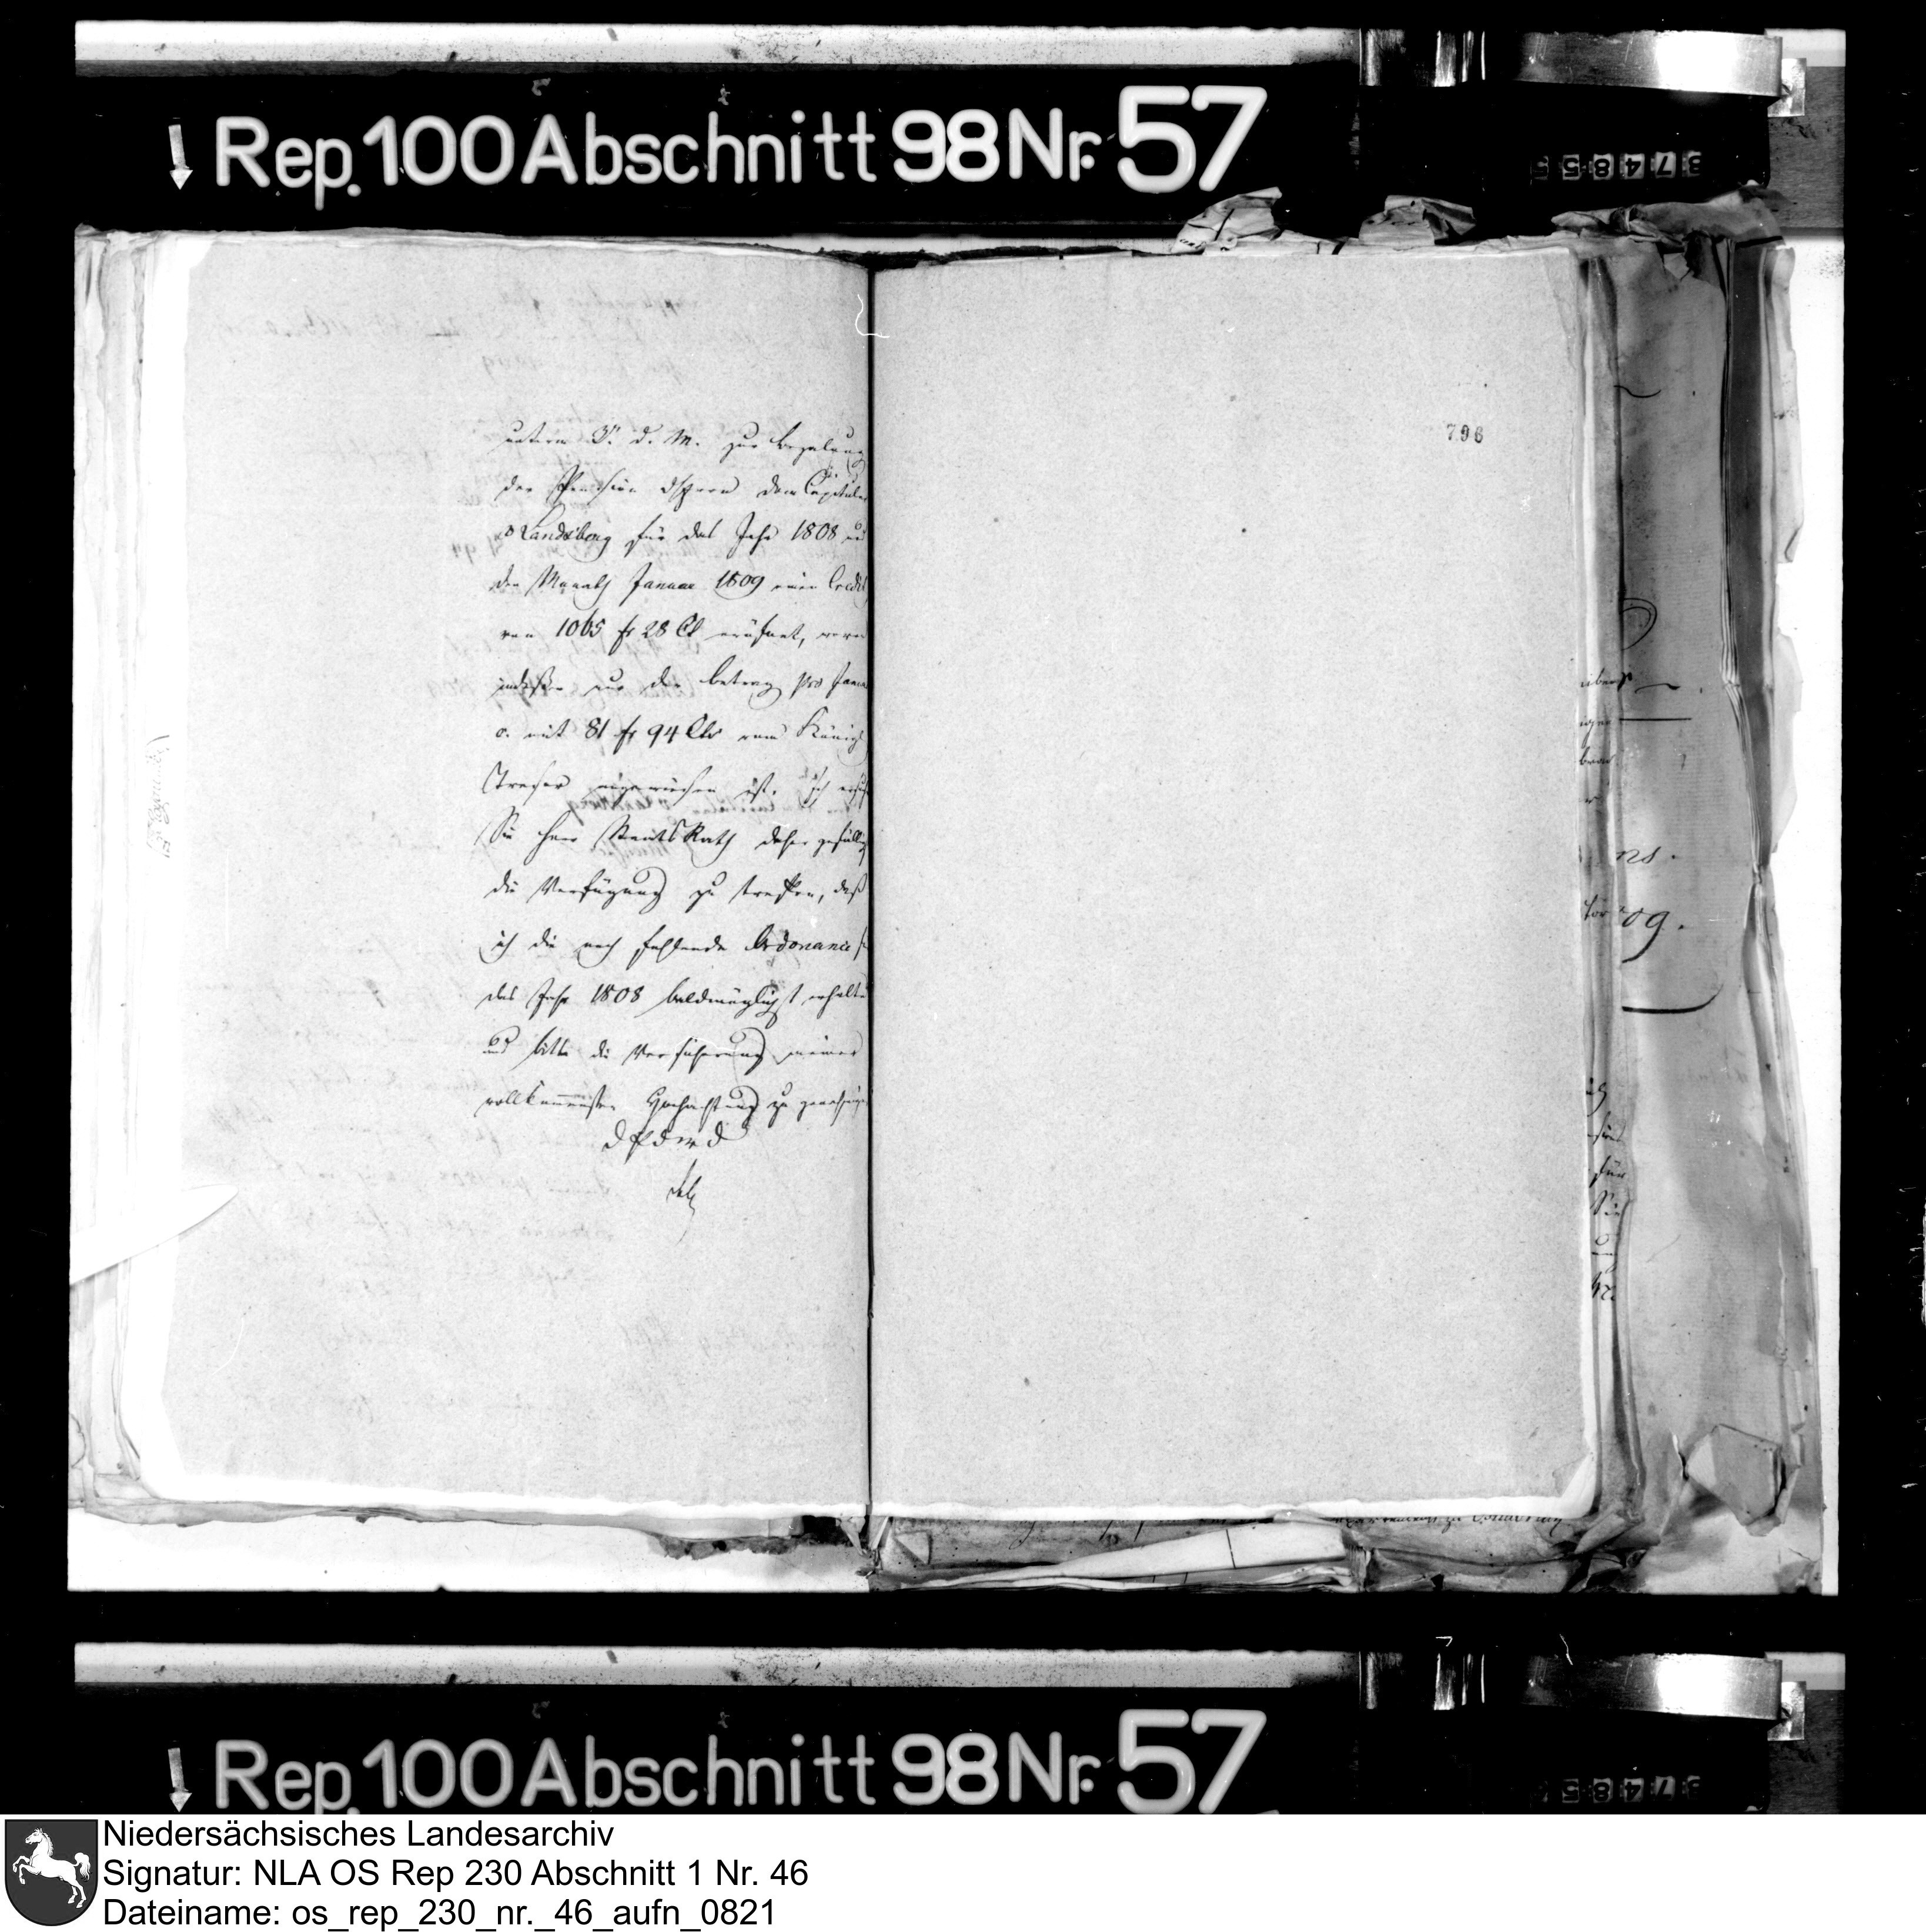 Rep. 100 Abschnitt 98 Nr. 57
37485
unterm d. M. zur Bezalung
der Pension dem Capitular
v Landsberg für das Jahr 1808 und
den Monath Januar 1809 einen Credit
von 1065 fr 28 Ct eröfnet, wovon
indeßen nur der Betrag pro Januar
mit 81 fr 94 Cts vom Königl
Tresor angewiesen ist. Ich ersuche
Sie Herr Staats Rath daher gefällig
die Verfügung zu treffen, daß
ich die noch fehlende Ordonance für
das Jahr 1808 baldmöglichst erhalte
und bitte die Versicherung meiner
vollkommensten Hochachtung zu genehmigen
796
Rep. 100 Abschnitt 98 Nr. 57
Niedersächsisches Landesarchiv
Signatur: NLA OS Rep 230 Abschnitt 1 Nr. 46
Dateiname: os_rep_230_nr._46_aufn_0821